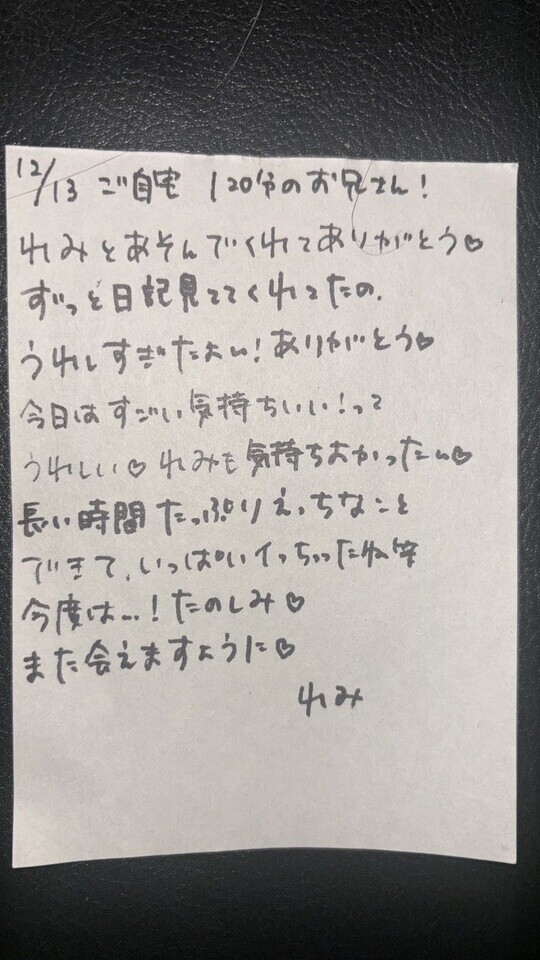 12/13 ご自宅 120分のお兄さん!
れみとあそんでくれてありがとう♡
ずっと日記見ててくれてたの、
うれしすぎたよい!ありがとう♡
今日はすごい気持ちいい!って
うれしい♡れみも気持ちよかったい♡
長い時間たっぷりえっちなこと
できて、いっぱいイっちゃったね笑
今度は…!たのしみ♡
また会えますように♡
れみ